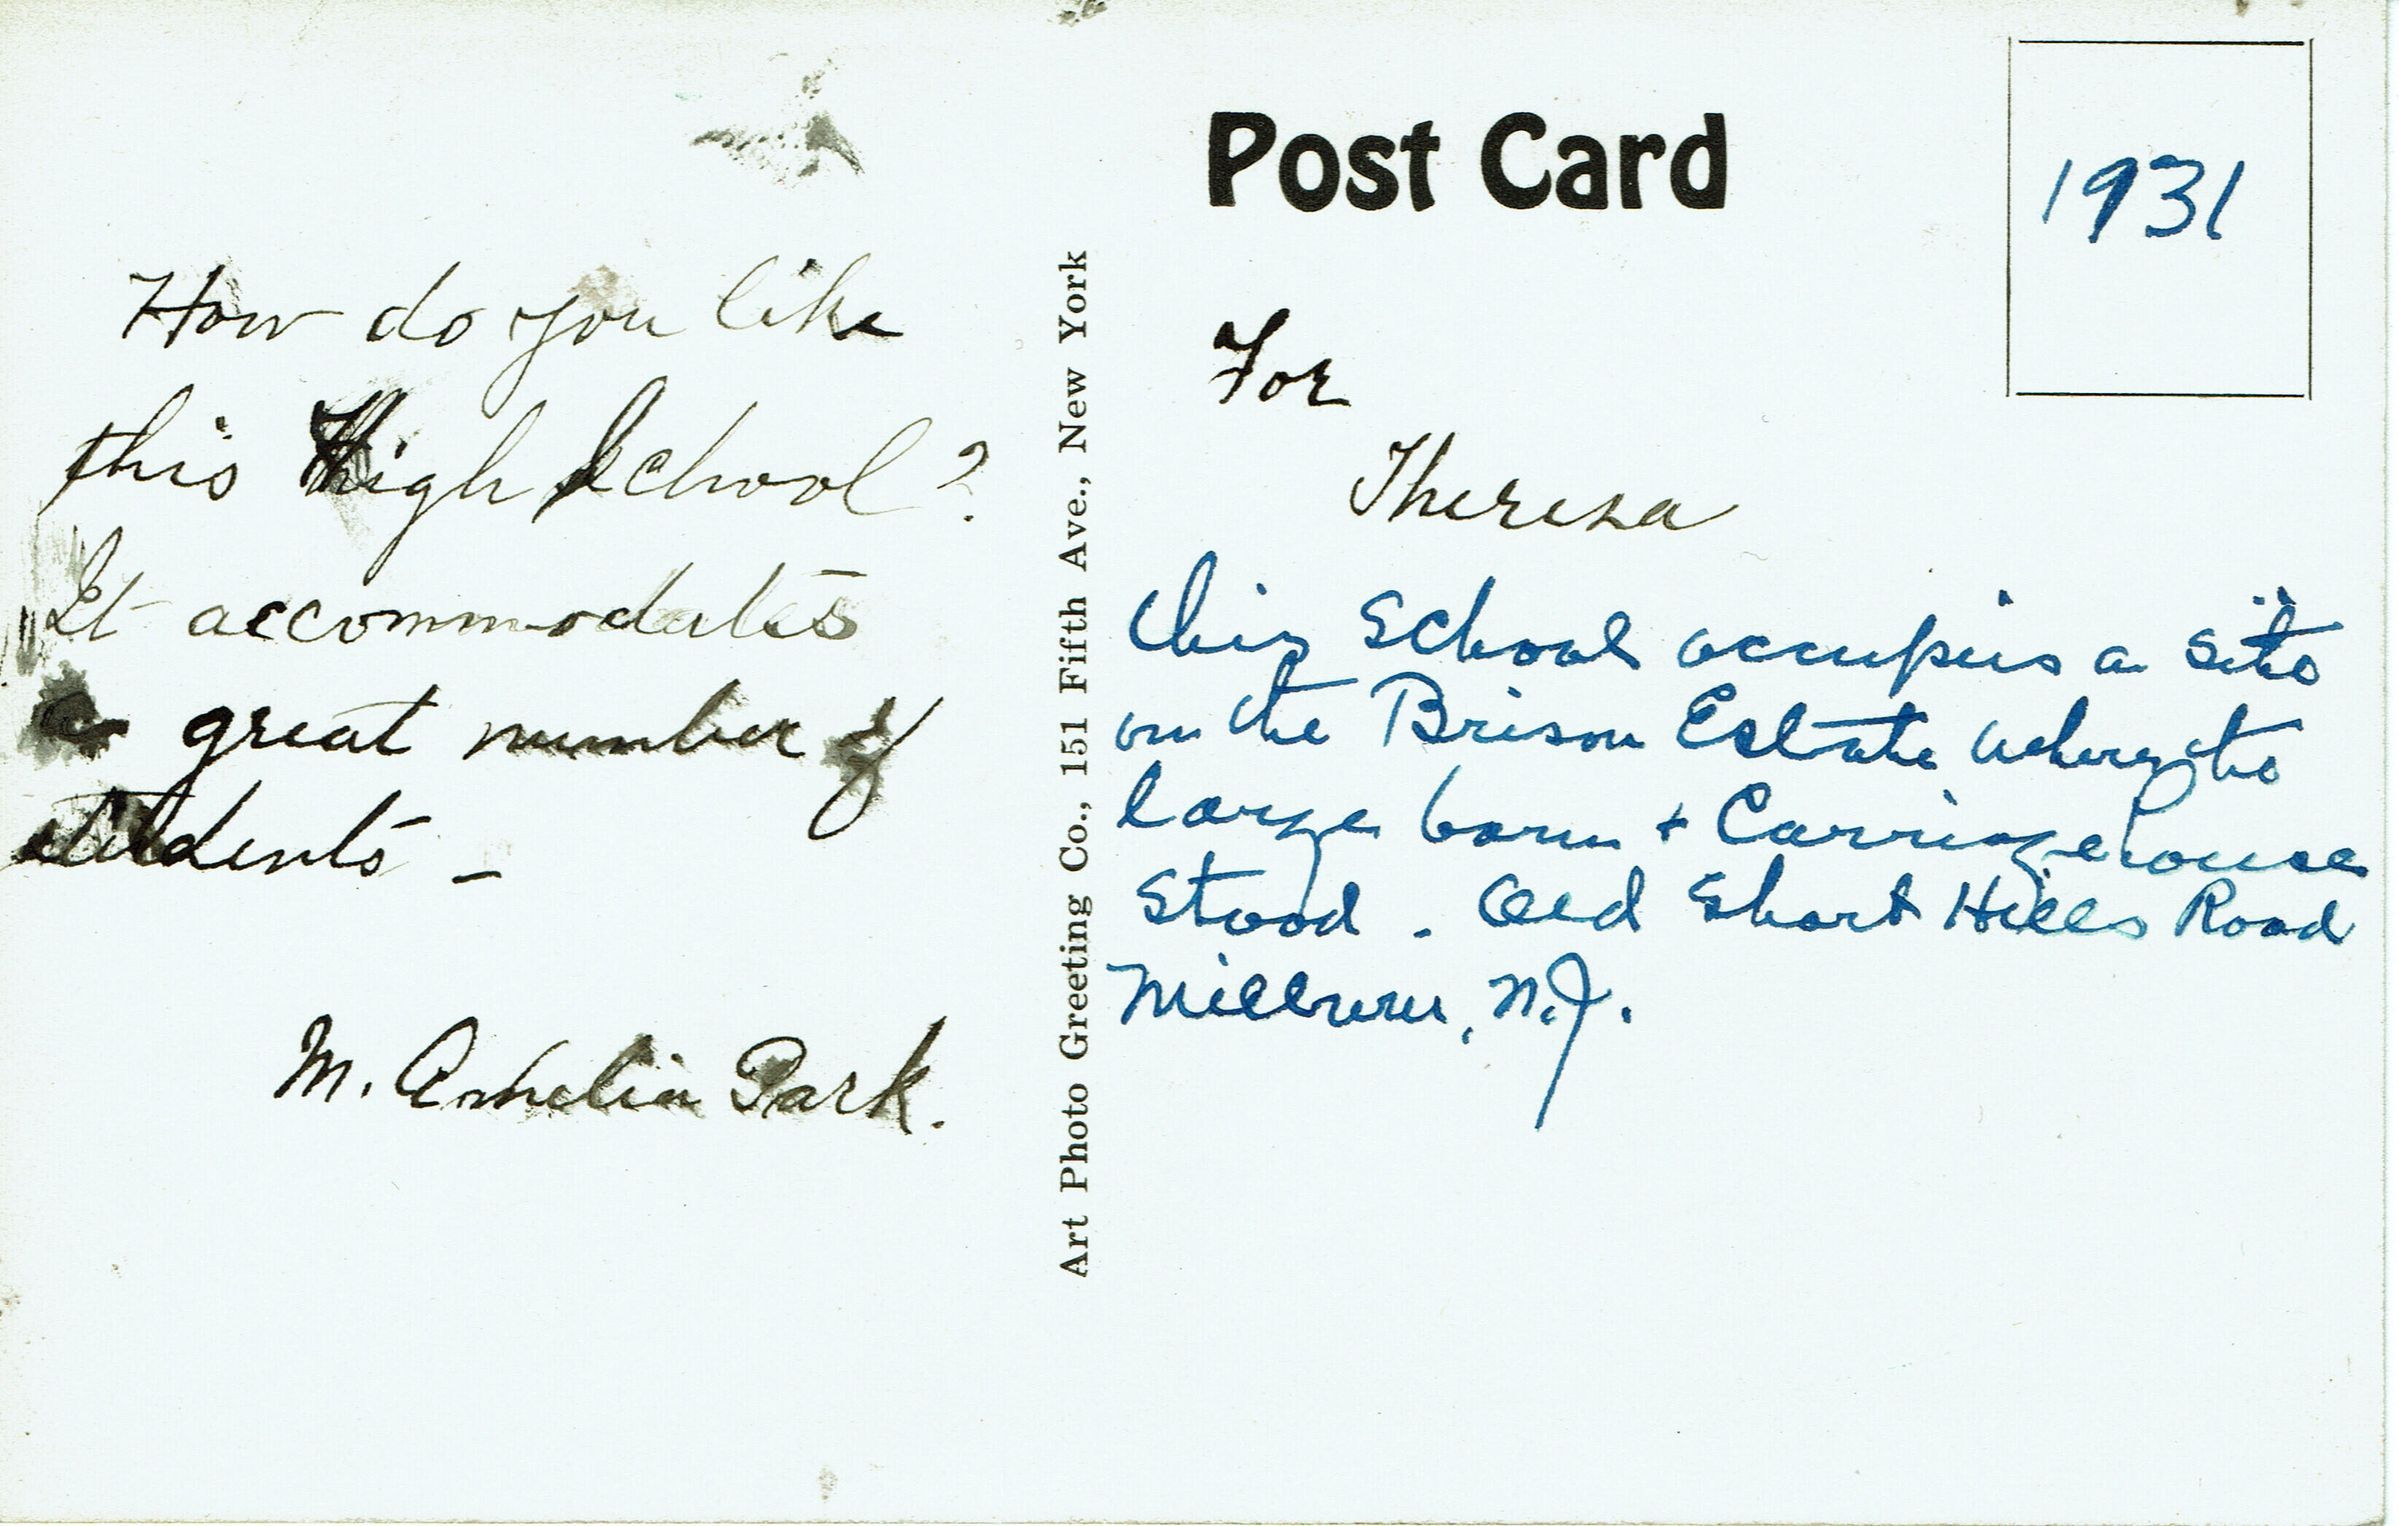 How do you like
this High School?
It accommodates
a great number of
students -
M. Amelia Park.
Art Photo Greeting Co., 151 Fifth Ave., New York
Post Card
1931
For
Theresa
this School occupies a site
on the Brison Estate where the
large barn + Carriage house
stood. Old Short Hills Road
Millburn, N.J.